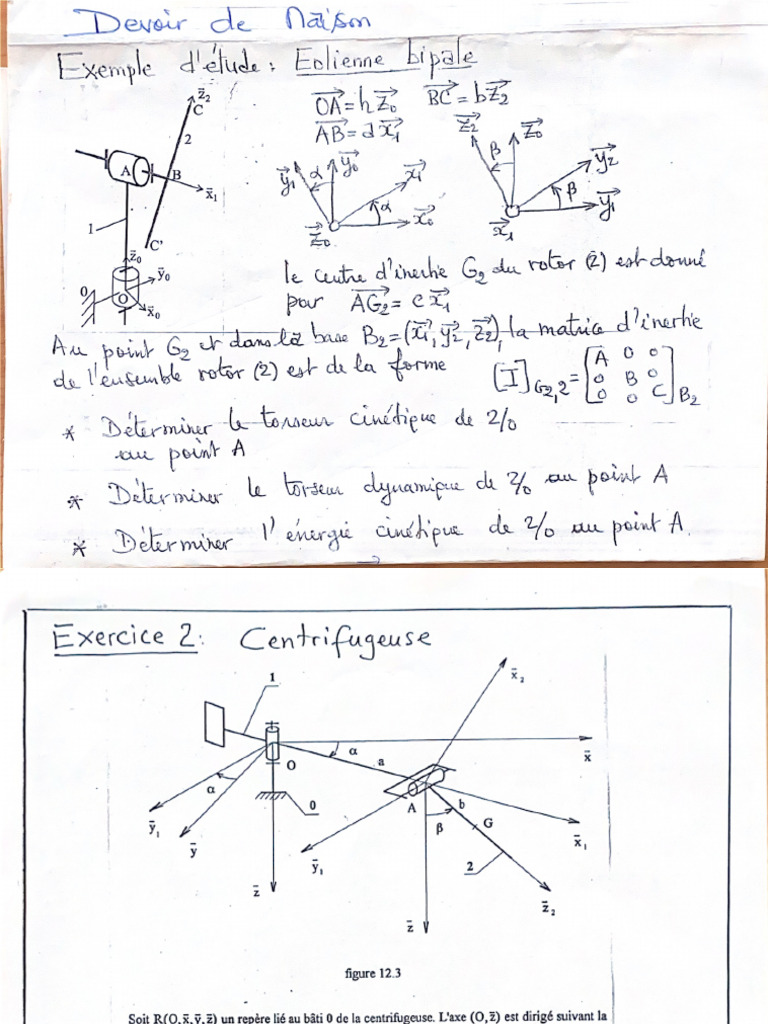 Devoir de Maison
Exemple d'étude : Eolienne bipale
z̄₂
C
2
A
B
x̄₁
1
C'
z̄₀
0
O
ȳ₀
x̄₀
OA→ = h z₀→ BC→ = b z₂→
AB→ = a x₁→
y₁→ α y₀→ x₁→
α x₀→
z₀→
z₂→ β z₀→ y₂→
β y₁→
x₁→
le centre d'inertie G₂ du rotor (2) est donné
par AG₂→ = c x₁→
Au point G₂ et dans la base B₂ = (x₁→, y₂→, z₂→), la matrice d'inertie
de l'ensemble rotor (2) est de la forme
[I]G₂,2 = [A 0 0
0 B 0
0 0 C]B₂
* Déterminer le torseur cinétique de 2/0
au point A
* Déterminer le torseur dynamique de 2/0 au point A
* Déterminer l'énergie cinétique de 2/0 au point A.
Exercice 2: Centrifugeuse
1
x̄₂
α
x̄
O
a
α
0
A
b
G
ȳ₁
ȳ
β
x̄₁
ȳ₁
2
z̄
z̄₂
z̄
figure 12.3
Soit R(O,x̄,ȳ,z̄) un repère lié au bâti 0 de la centrifugeuse. L'axe (O,z̄) est dirigé suivant la